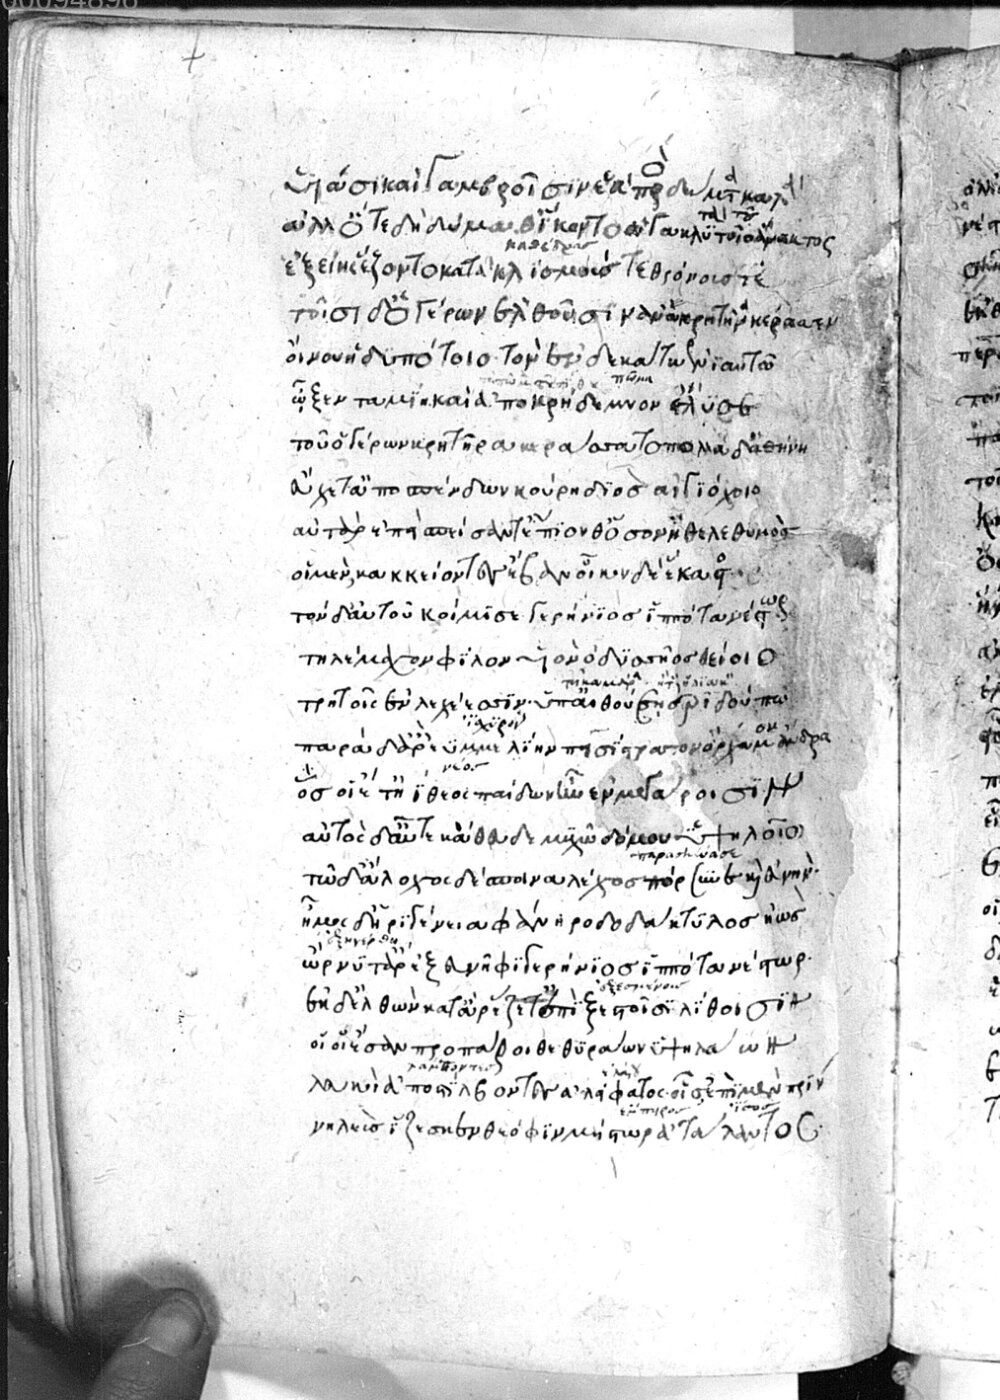 υἱάσι καὶ γαμβροῖσιν ἑὰ πρὸς δώματα καλά
ἀλλ' ὅτε δὴ δώμαθ' ἵκοντο ἀγακλυτὰ τοῖο ἄνακτος
καθέδρας
ἑξείης ἕζοντο κατὰ κλισμούς τε θρόνους τέ
τοῖσι δ' ὁ γέρων ἐλθοῦσιν ἀνὰ κρητῆρα κέρασσεν
οἴνου ἡδυπότοιο· τὸν ἑνδεκάτω ἐνϊαυτῶ
πῶμα
ὤϊξεν ταμίη καὶ ἀπὸ κρήδεμνον ἔλϋσε
τοῦ ὁ γέρων κρητῆρα κεράσσατο πολλὰ δ' ἀθήνη
εὔχετ' ἀποσπένδων κούρη διὸς αἰγϊόχοιο
αὐτὰρ ἐπεὶ σπεῖσάν τ' ἔπϊον θ' ὅσον ἤθελε θυμός
οἱ μὲν κακκείοντες ἔβαν οἶκόνδε ἕκαστος
τὸν δ' αὐτοῦ κοίμισε γερήνϊος ἱππότα νέστωρ
τηλέμαχον φίλον υἱὸν ὀδυσσῆος θείοιο
τρητοῖς ἐν λεχέεσσϊν· ὑπ' αἰθούση ἐριδούπω
ἰσχυρὸν
παρὰ δ' ἄρ' ἐϋμμελίην πεισίστρατον ὄρχαμον ἀνδρα
νέος
ὅς οἱ ἔτ' ἠίθεος παίδων ἦν ἐν μεγάροισϊν
αὐτὸς δ' αὖτε καθεῦδε μυχῶ δόμου ὑψηλοῖο
παρασκεύασε
τῶ δ' ἄλοχος δέσποινα λέχος πόρσυνε καὶ εὐνήν·
ἦμος δ' ἠρϊγένεια φάνη ῥοδοδάκτϋλος ἠώς
ἐξηγέρθη
ὤρνϋτ' ἄρ' ἐξ εὐνῆφϊ γερήνϊος ἱππότα νέστωρ·
ἐξεσμένοις
ἐκ δ' ἐλθὼν κατ' ἄρ' ἕζετ' ἐπὶ ξεστοῖσϊ λίθοισϊν
οἵ οἱ ἔσαν προπάροιθε θϋράων ὑψηλάων
λάμποντες ἐλαίου
λευκοὶ ἀποστίλβοντες ἀλείφατος· οἷς ἔπϊ μὲν πρὶν
ἔμπειρος ἴσος
νηλεὺς ἵζεσκεν θεόφϊν μήστωρ ἀτάλαντος